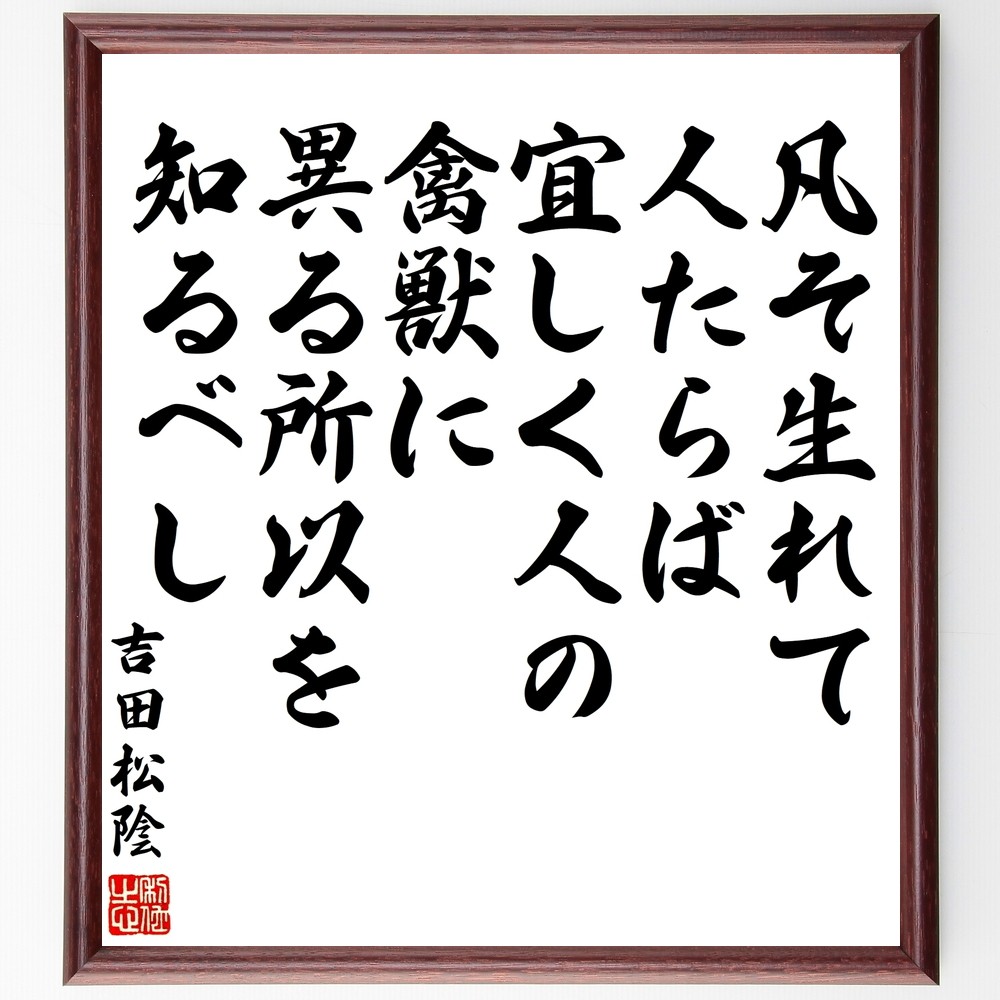 凡そ生れて
人たらば
宜しく人の
禽獣に
異る所以を
知るべし
吉田松陰